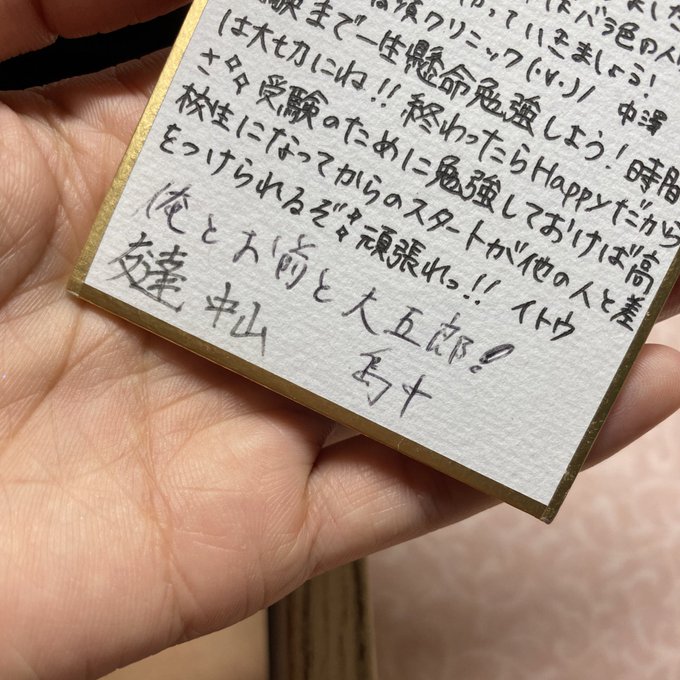 はバラ色の人
っていきましょう!
後クリニック(・∀・)/ 中澤
験まで一生懸命勉強しよう!時間
は大切にね!!終わったらHappyだから
さ 受験のために勉強しておけば高
校生になってからのスタートが他の人と差
をつけられるぞ 頑張れっ!! イトウ
俺とお前と大五郎!
友達 中山